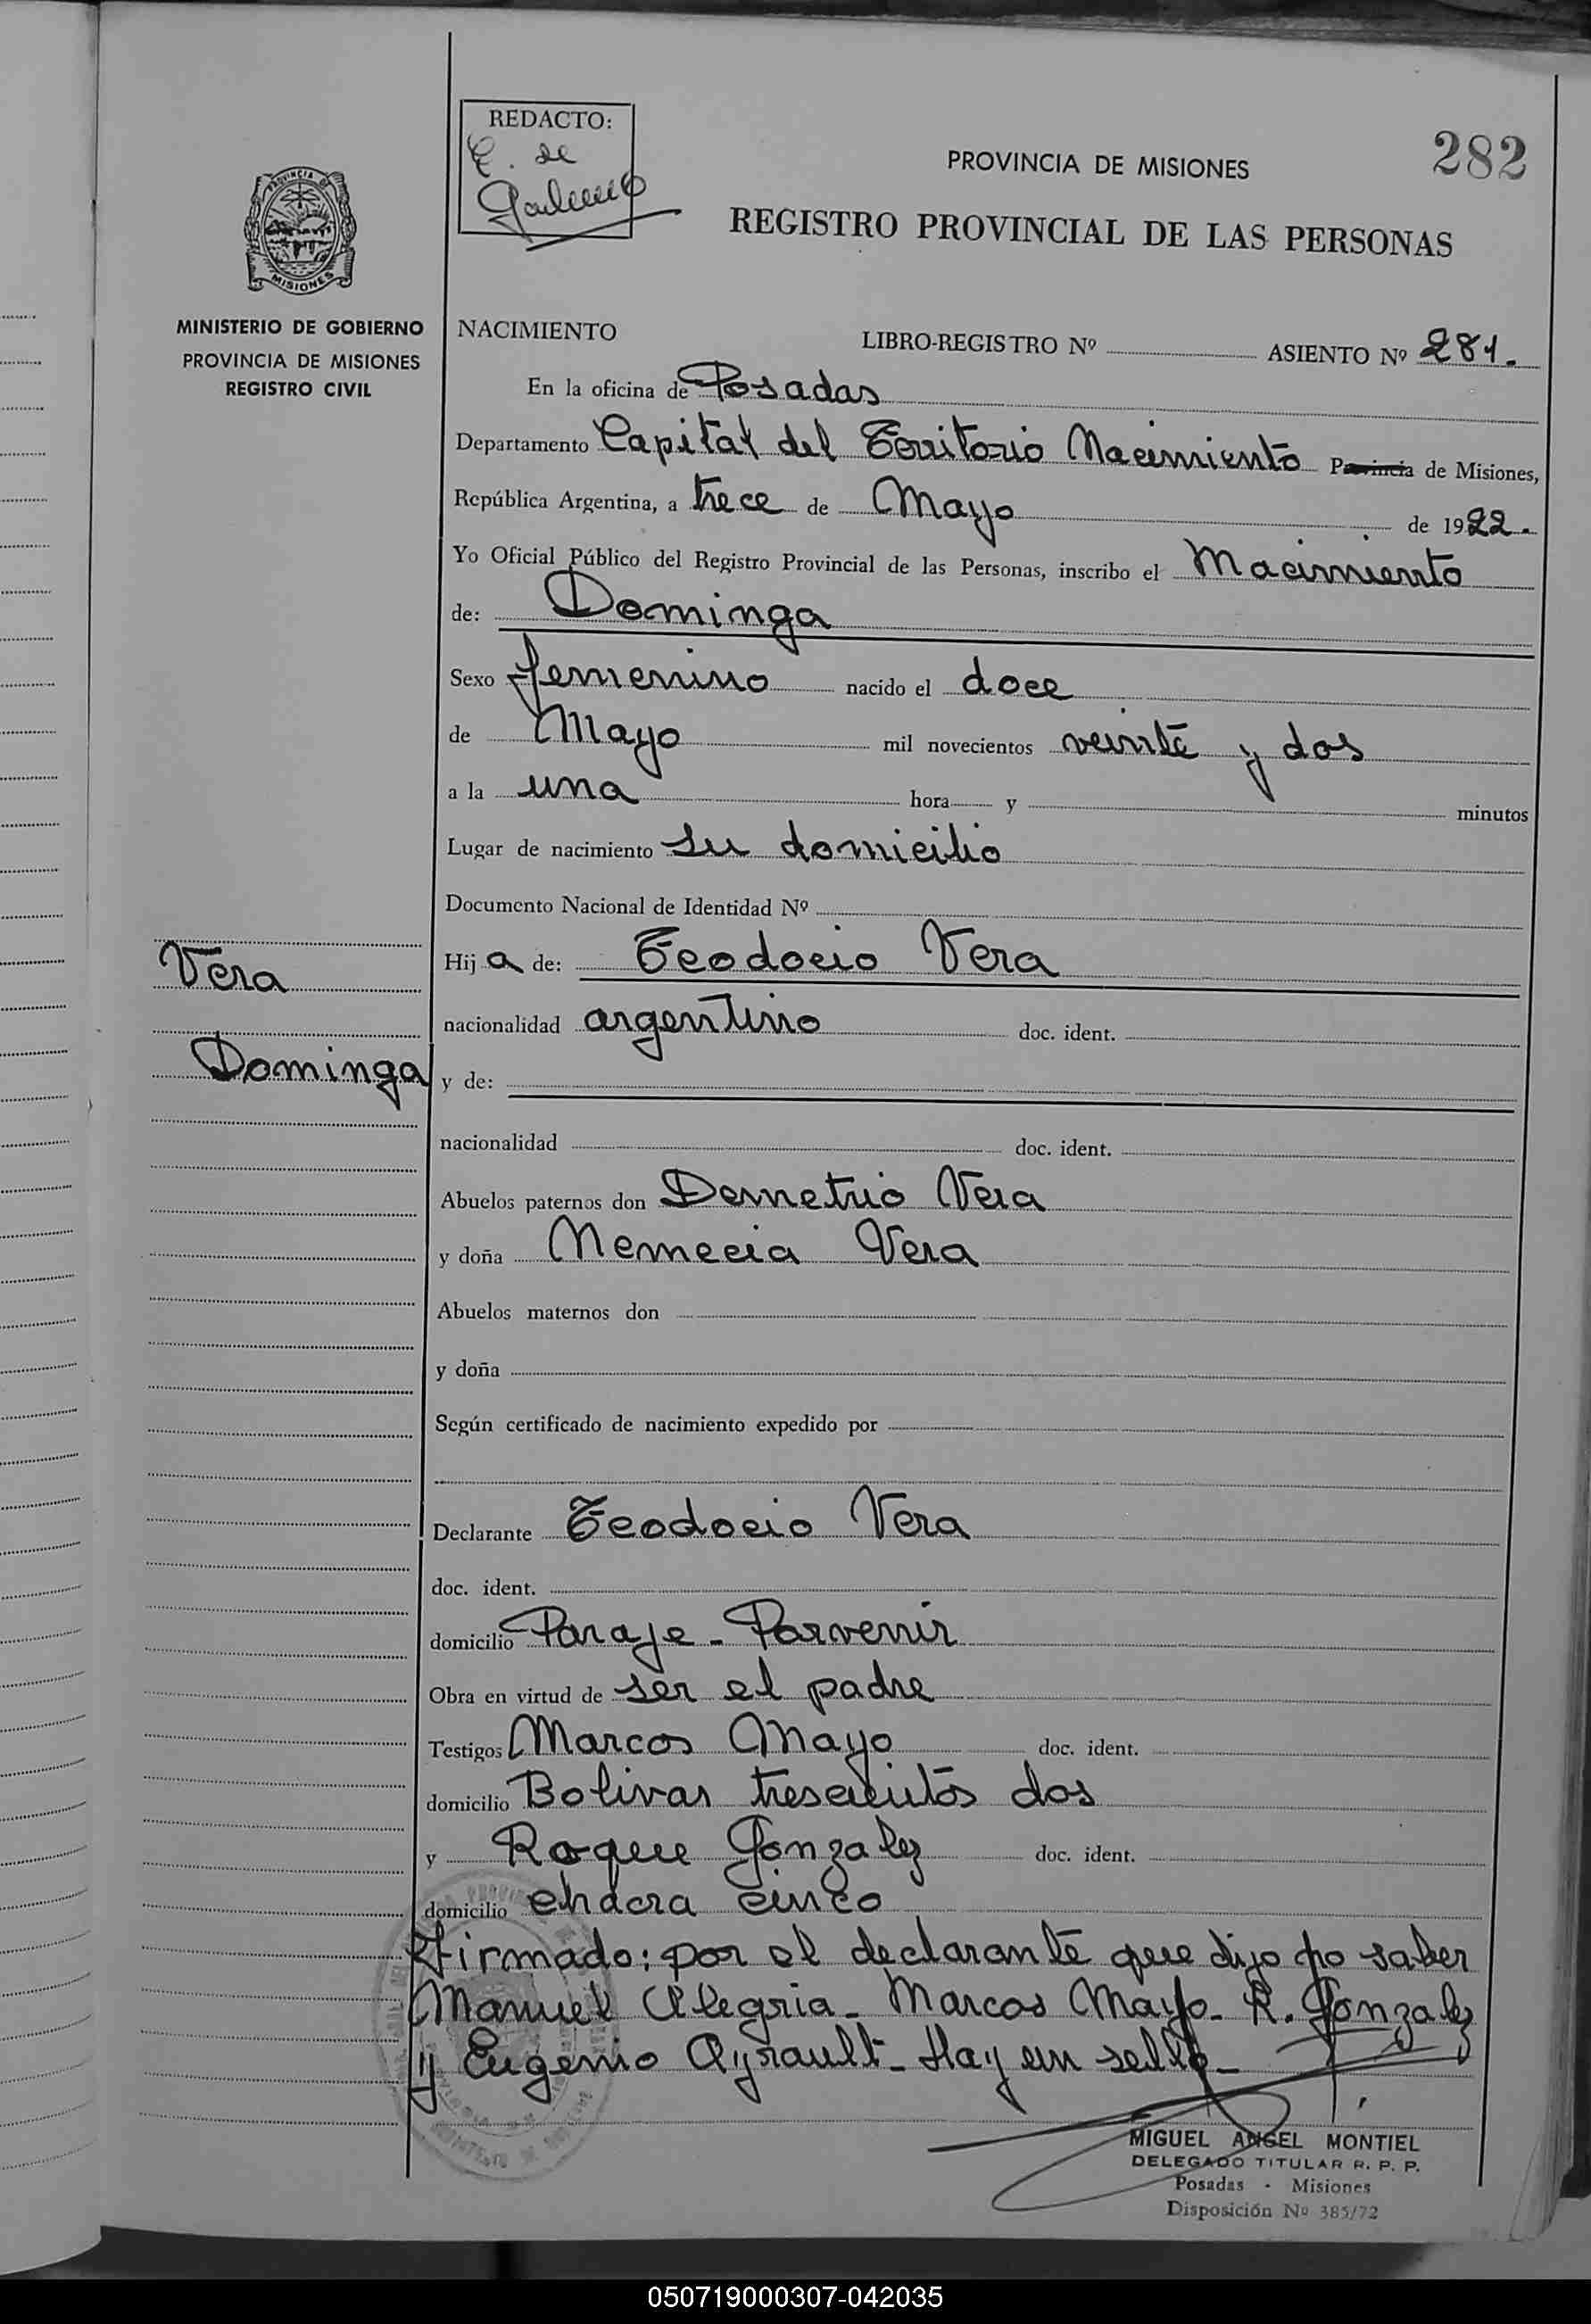 REDACTO:
E. de
282
PROVINCIA DE MISIONES
REGISTRO PROVINCIAL DE LAS PERSONAS
PROVINCIA DE
MISIONES
MINISTERIO DE GOBIERNO
PROVINCIA DE MISIONES
REGISTRO CIVIL
NACIMIENTO LIBRO-REGISTRO Nº ASIENTO Nº 281.
En la oficina de Posadas
Departamento Capital del Territorio Nacimiento Provincia de Misiones,
República Argentina, a trece de Mayo de 1922.
Yo Oficial Público del Registro Provincial de las Personas, inscribo el Nacimiento
de: Dominga
Sexo femenino nacido el doce
de Mayo mil novecientos veinte y dos
a la una hora y minutos
Lugar de nacimiento Su domicilio
Documento Nacional de Identidad Nº
Vera
Hij a de: Teodocio Vera
nacionalidad argentino doc. ident.
Dominga
y de:
nacionalidad doc. ident.
Abuelos paternos don Demetrio Vera
y doña Nemecia Vera
Abuelos maternos don
y doña
Según certificado de nacimiento expedido por
Declarante Teodocio Vera
doc. ident.
domicilio Paraje - Porvenir
Obra en virtud de ser el padre
Testigos Marcos Mayo doc. ident.
domicilio Bolivar trescientos dos
y Roque Gonzalez doc. ident.
domicilio chacra cinco
Firmado: por el declarante que dijo no saber
Manuel Alegria - Marcos Mayo - R. Gonzalez
y Eugenio Ayrault - Hay un sello -
MIGUEL ANGEL MONTIEL
DELEGADO TITULAR R. P. P.
Posadas - Misiones
Disposición Nº 385/72
050719000307-042035